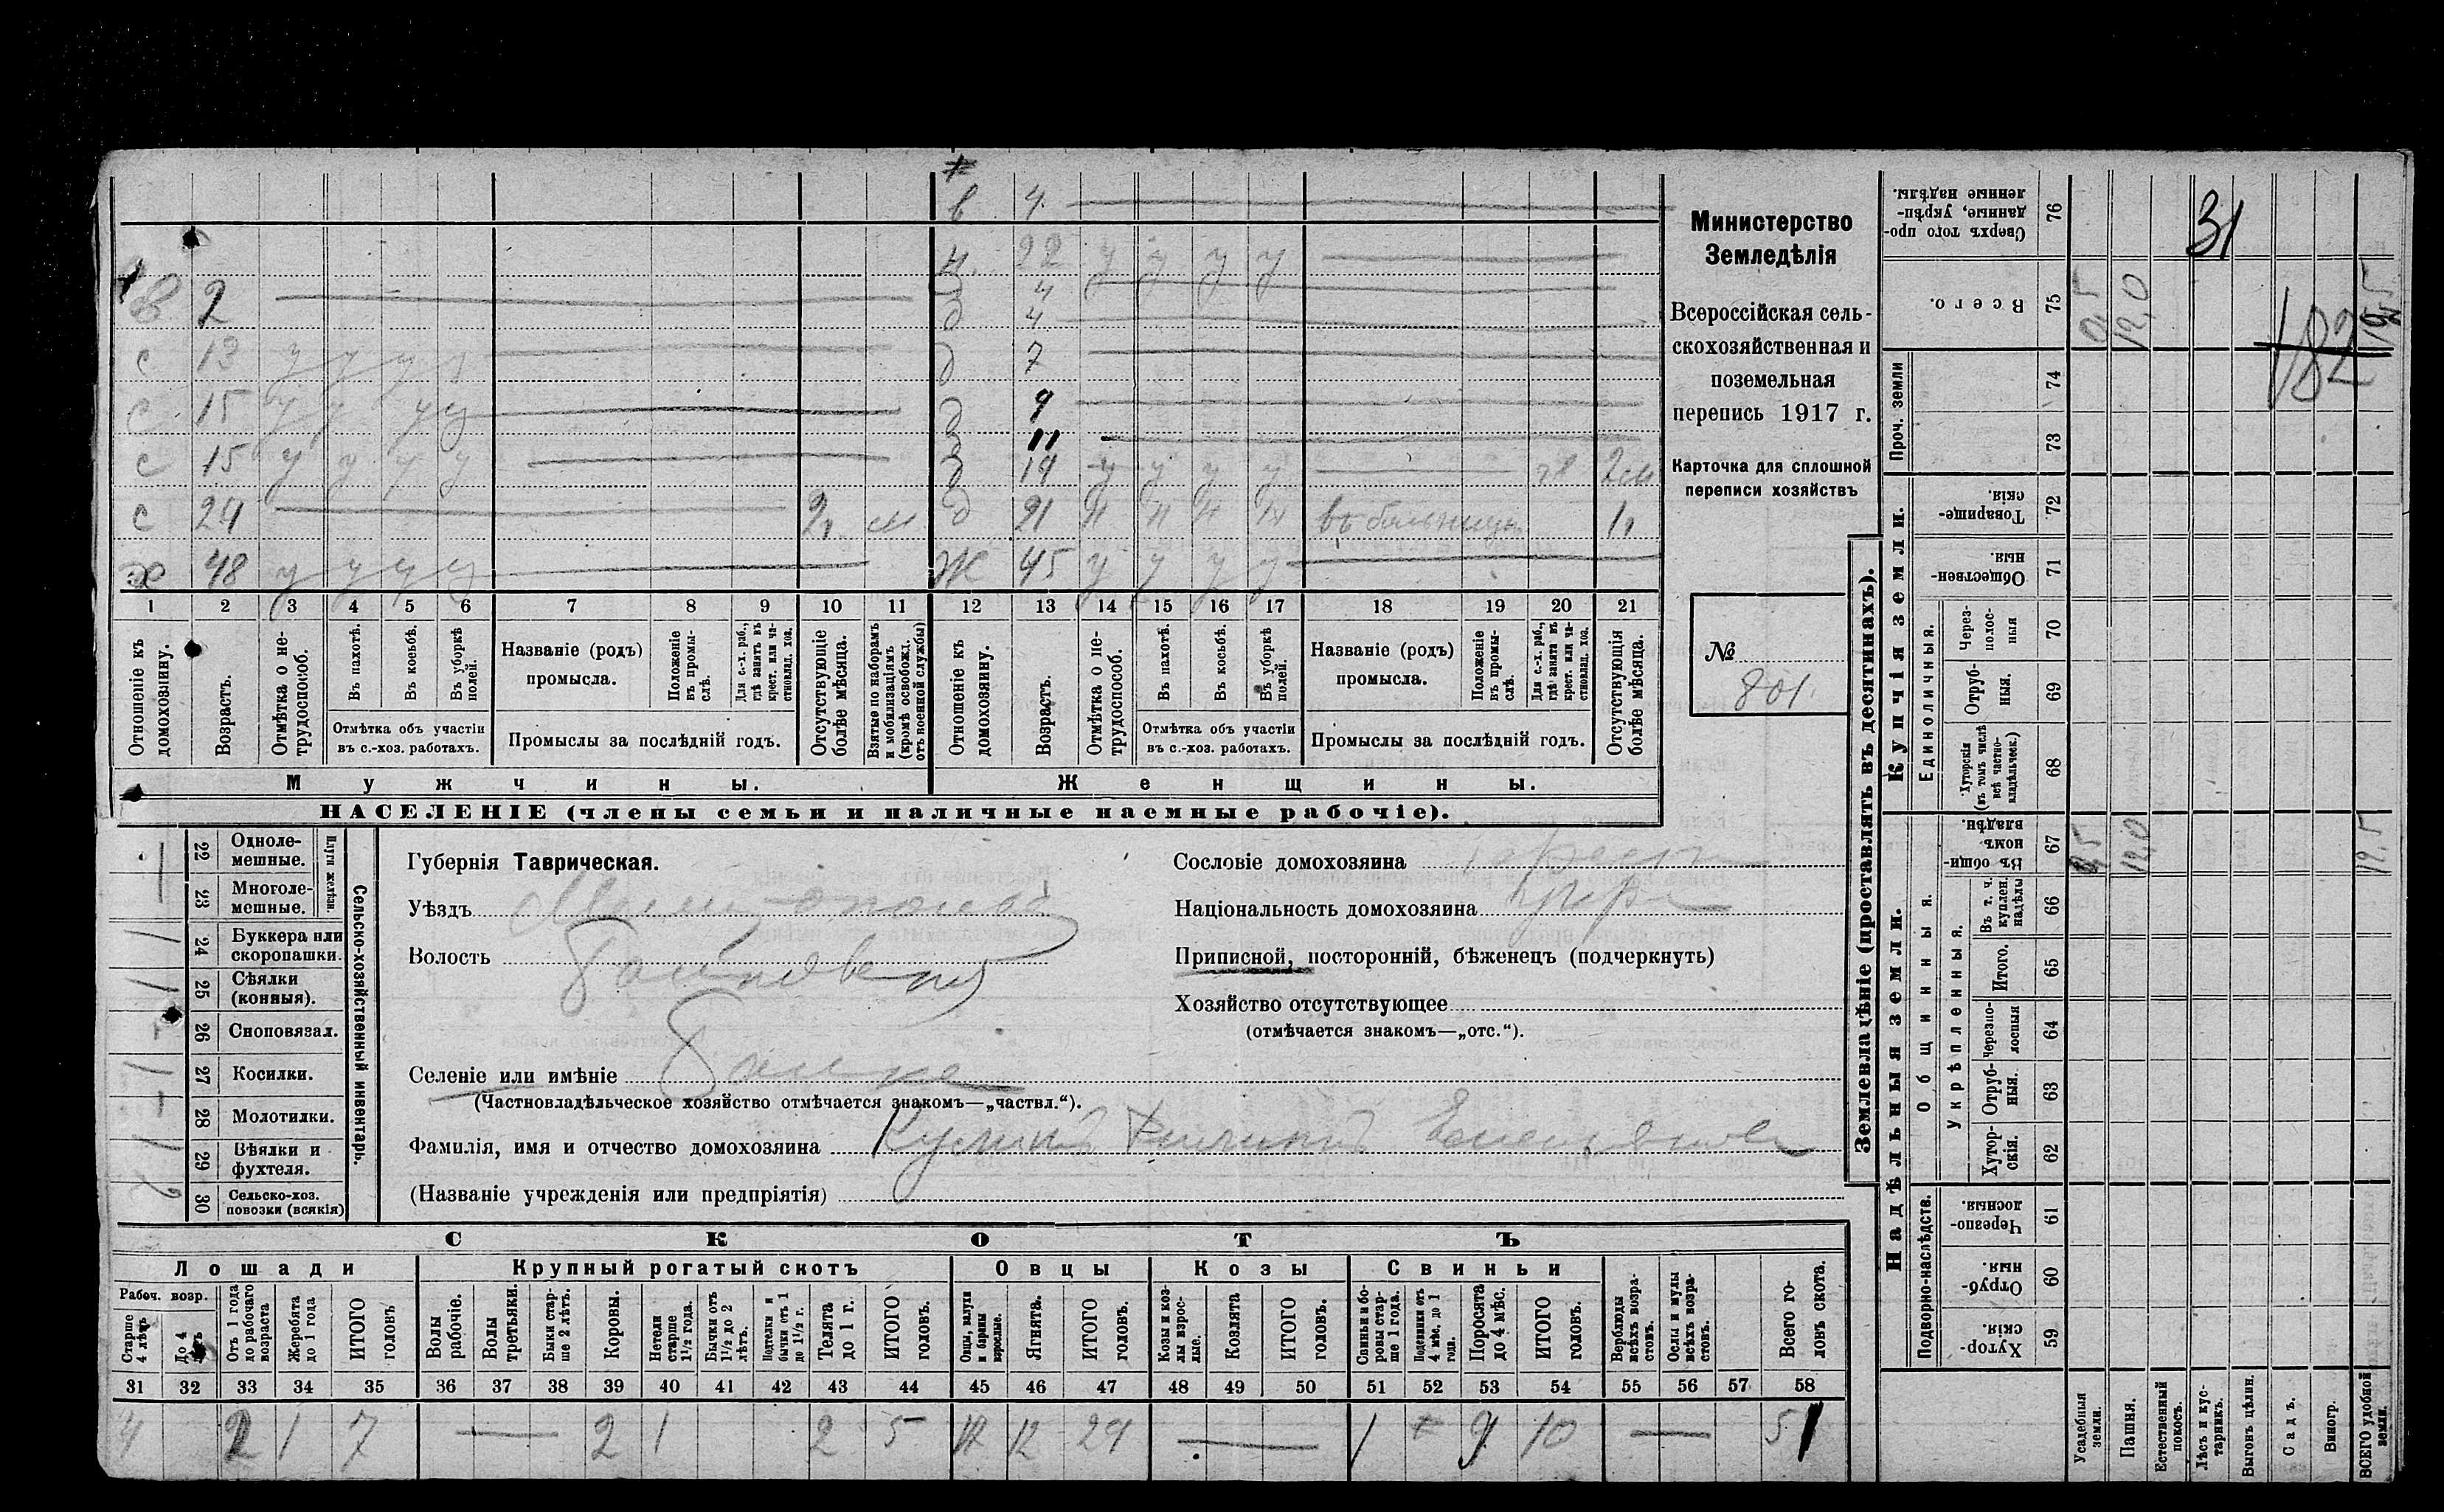 в 4
в 2
с 13 у у у у
с 15 у у у у
с 15 у у у у
с 24 2, м
х 48 у у у у
н. 22 у у у у
д 4
д 4
д 7
д 9
д 11
д 19 у у у у 2м
д 21 н н н н въ больницѣ 1,
ж 45 у у у у
1 2 3 4 5 6 7 8 9 10 11 12 13 14 15 16 17 18 19 20 21
Отношеніе къ домохозяину.
Возрастъ.
Отмѣтка о нетрудоспособ.
Въ пахотѣ.
Въ косьбѣ.
Въ уборкѣ полей.
Отмѣтка объ участіи
въ с.-хоз. работахъ.
Названіе (родъ)
промысла.
Положеніе въ промыслѣ.
Для с.-х. раб., гдѣ занятъ въ крест. или частновлад. хоз.
Промыслы за послѣдній годъ.
Отсутствующіе болѣе мѣсяца.
Взятые по наборамъ и мобилизаціямъ (кромѣ освобожд. отъ военной службы)
Отношеніе къ домохозяину.
Возрастъ.
Отмѣтка о нетрудоспособ.
Въ пахотѣ.
Въ косьбѣ.
Въ уборкѣ полей.
Отмѣтка объ участіи
въ с.-хоз. работахъ.
Названіе (родъ)
промысла.
Положеніе въ промыслѣ.
Для с.-х. раб., гдѣ занята въ крест. или частновлад. хоз.
Промыслы за послѣдній годъ.
Отсутствующія болѣе мѣсяца.
Мужчины.
Женщины.
НАСЕЛЕНІЕ (члены семьи и наличные наемные рабочіе).
Министерство
Земледѣлія
Всероссійская сель-
скохозяйственная и
поземельная
перепись 1917 г.
Карточка для сплошной
переписи хозяйствъ
№
801
22 Одноле-
мешные.
23 Многоле-
мешные.
Плуги желѣзн.
24 Буккера или
скоропашки. 1
25 Сѣялки
(конныя). 1
26 Сноповязал. -
27 Косилки. 1
28 Молотилки. -
29 Вѣялки и
фухтеля. 1
30 Сельско-хоз.
повозки (всякія) 2
Сельско-хозяйственный инвентарь.
Губернія Таврическая.
Уѣздъ Мелитопольскій
Волость
Селеніе или имѣніе
(Частновладѣльческое хозяйство отмѣчается знакомъ—„частвл.“).
Фамилія, имя и отчество домохозяина
(Названіе учрежденія или предпріятія)
Сословіе домохозяина крест
Національность домохозяина
Приписной, посторонній, бѣженецъ (подчеркнуть)
Хозяйство отсутствующее
(отмѣчается знакомъ—„отс.“).
СКОТЪ
Лошади Крупный рогатый скотъ Овцы Козы Свиньи
Рабоч. возр.
Старше 4 лѣтъ
До 4 лѣтъ
Отъ 1 года до рабочаго возраста
Жеребята до 1 года
ИТОГО головъ
Волы рабочіе.
Волы третьяки.
Быки старше 2 лѣтъ.
Коровы.
Нетели старше 1½ года.
Бычки отъ 1½ до 2 лѣтъ.
Подтелки и бычки отъ 1 до 1½ г.
Телята до 1 г.
ИТОГО головъ.
Овцы, валухи и бараны взрослые.
Ягнята.
ИТОГО головъ.
Козы и козлы взрослые.
Козлята
ИТОГО головъ.
Свиньи и боровы старше 1 года.
Подсвинки отъ 4 мѣс. до 1 года.
Поросята до 4 мѣс.
ИТОГО головъ.
Верблюды всѣхъ возрастовъ.
Ослы и мулы всѣхъ возрастовъ.
Всего головъ скота.
31 32 33 34 35 36 37 38 39 40 41 42 43 44 45 46 47 48 49 50 51 52 53 54 55 56 57 58
4 2 1 7 2 1 2 5 12 29 1 9 10 51
Землевладѣніе (проставлять въ десятинахъ).
Сверхъ того проданные, укрѣпленные надѣлы. 76
31
Всего. 75 0,5 12,0
182
Проч. земли 74 73
Купчія земли.
Товарищескія. 72
Общественныя. 71
Единоличныя.
Черезполосныя 70
Отрубныя. 69
Хуторскія (въ томъ числѣ всѣ частновладѣльческ.) 68
Надѣльныя земли.
Общинныя.
Въ общинномъ владѣн. 67 0,5 12,0 12,5
Укрѣпленныя.
Въ т. ч. куплен. надѣлы 66
Итого. 65
Черезполосныя 64
Отрубныя. 63
Хуторскія. 62
Подворно-наслѣдств.
Черезполосныя. 61
Отрубныя. 60
Хуторскія. 59
Усадебныя земли.
Пашня.
Естественный покосъ.
Лѣсъ и кустарникъ.
Выгонъ цѣлин.
Садъ.
Виногр.
ВСЕГО удобной земли.